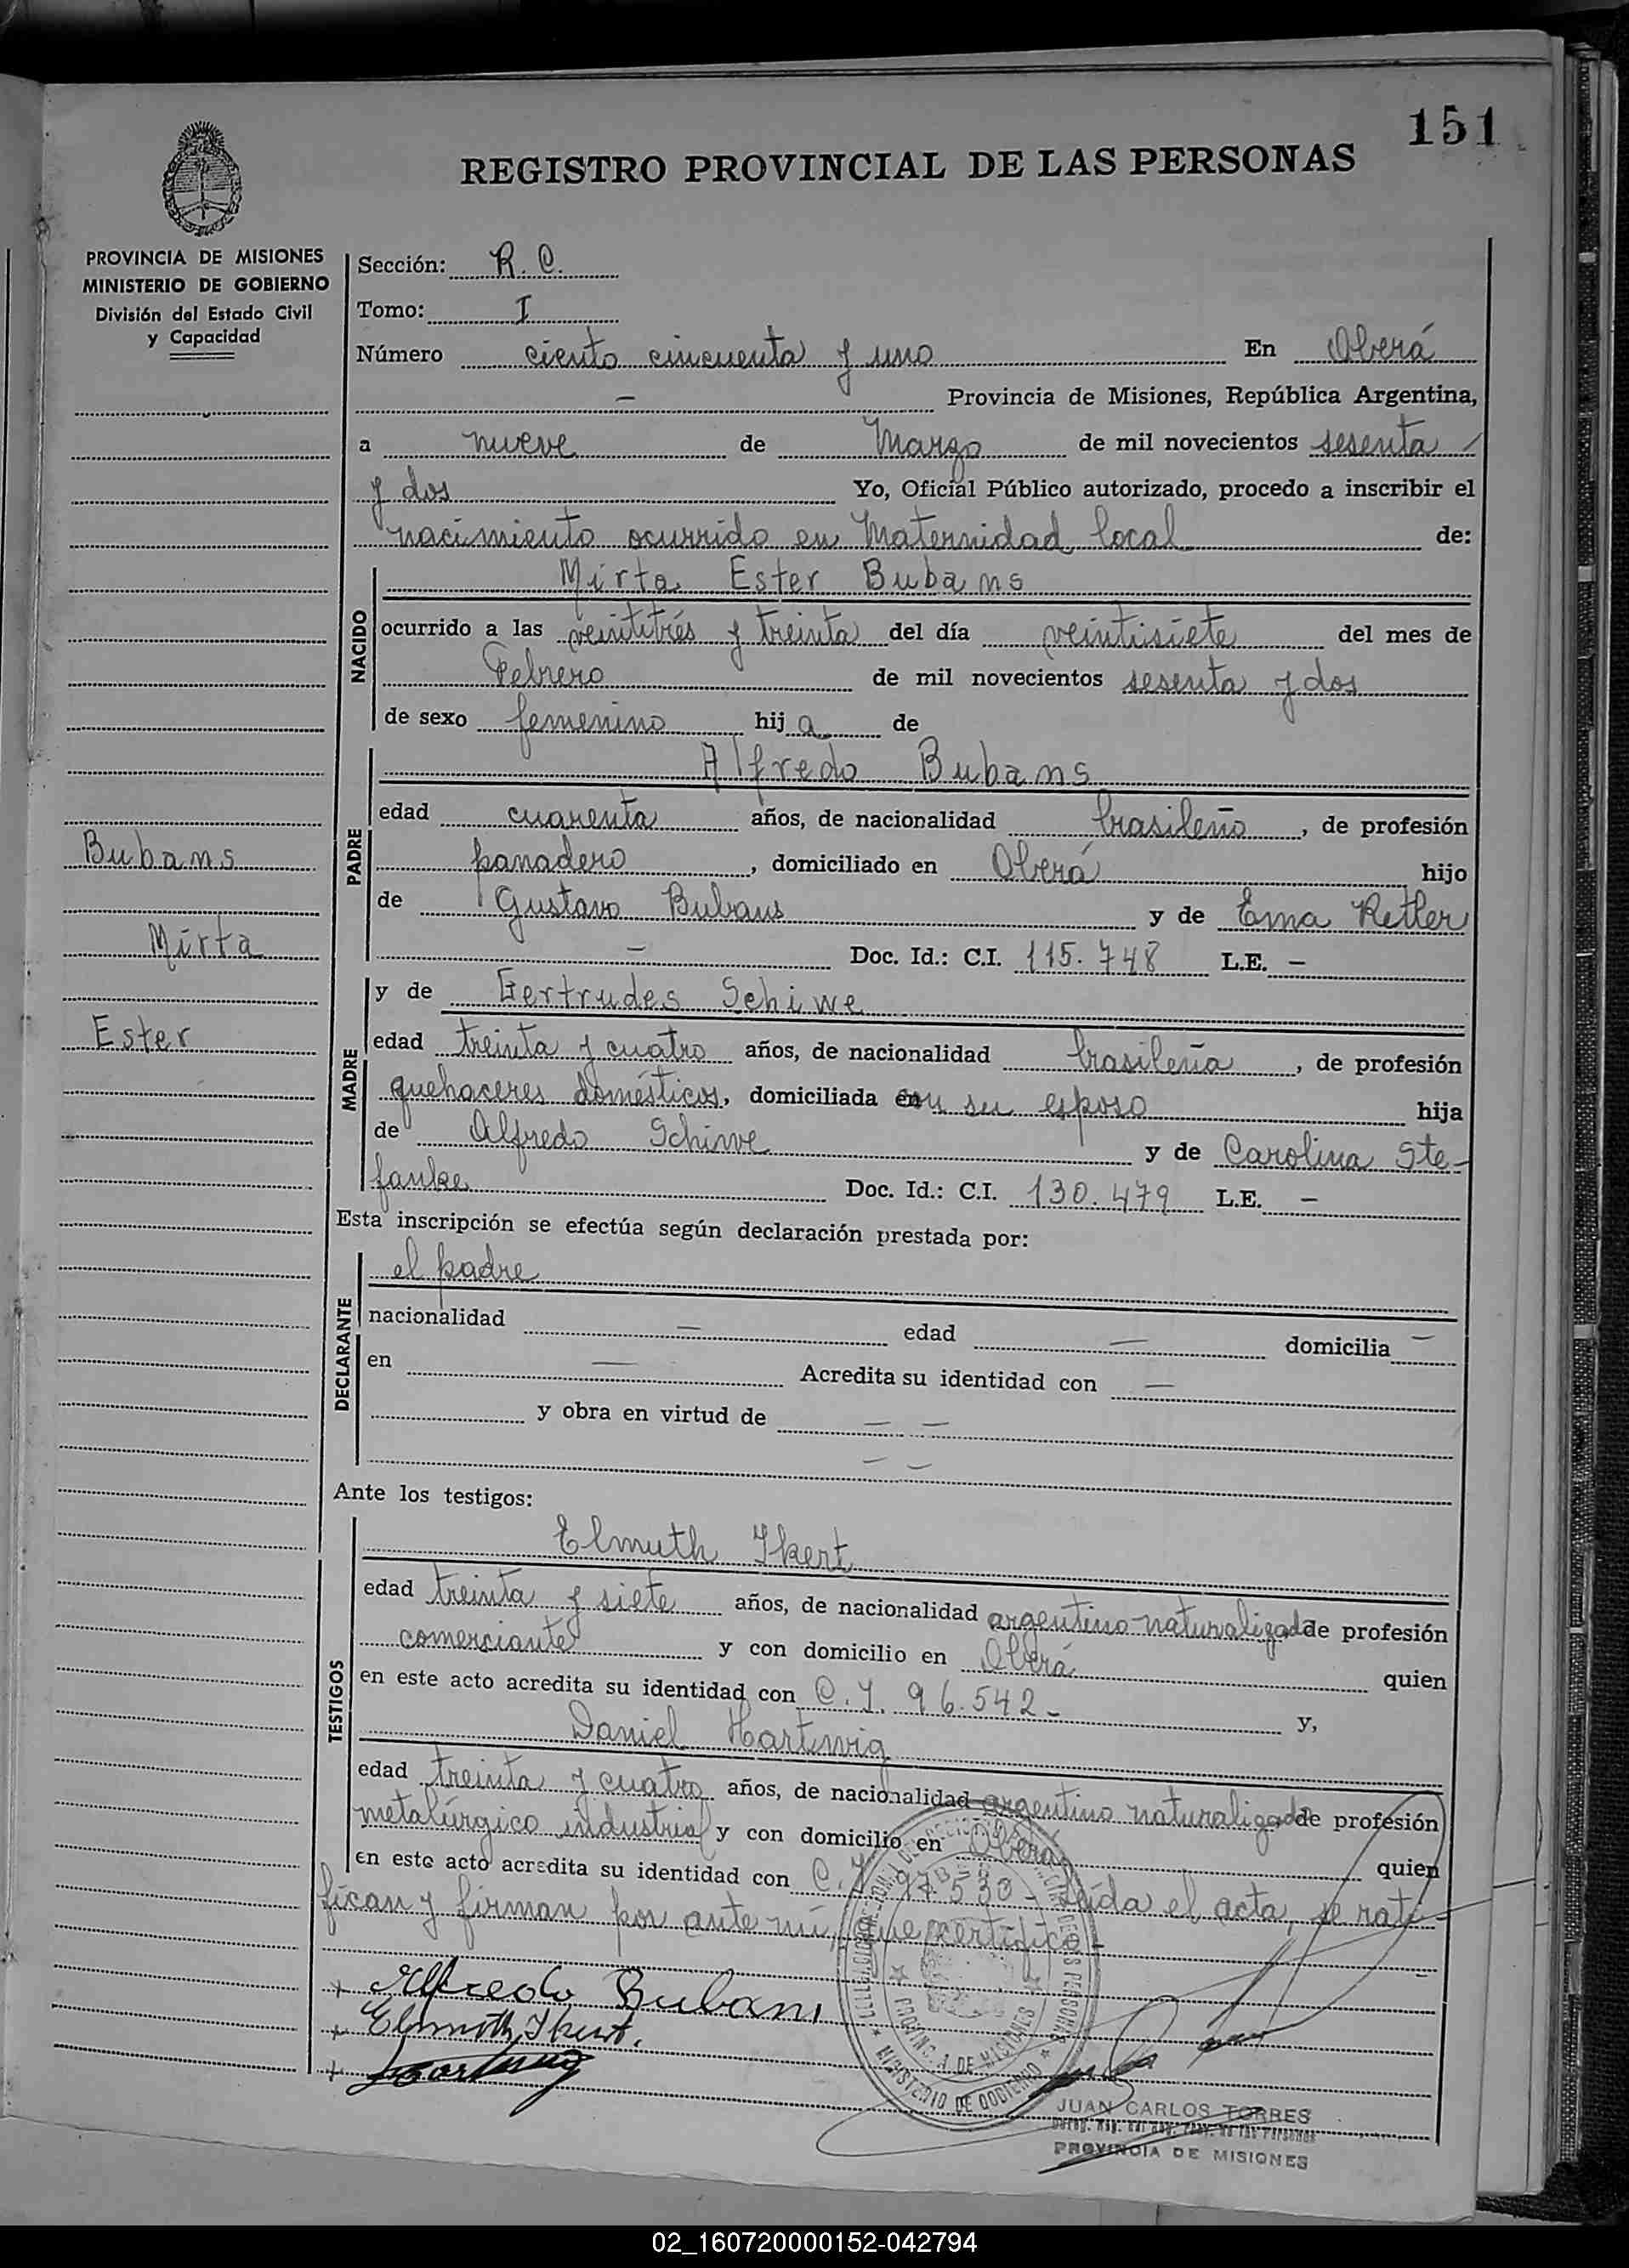 151
REGISTRO PROVINCIAL DE LAS PERSONAS
PROVINCIA DE MISIONES
MINISTERIO DE GOBIERNO
División del Estado Civil
y Capacidad
Bubans
Mirta
Ester
Sección: R. C.
Tomo: I
Número ciento cincuenta y uno En Oberá
— Provincia de Misiones, República Argentina,
a nueve de Marzo de mil novecientos sesenta
y dos Yo, Oficial Público autorizado, procedo a inscribir el
nacimiento ocurrido en Maternidad local de:
NACIDO
Mirta Ester Bubans
ocurrido a las veintitrés y treinta del día veintisiete del mes de
Febrero de mil novecientos sesenta y dos
de sexo femenino hij a de
PADRE
Alfredo Bubans
edad cuarenta años, de nacionalidad brasileño, de profesión
panadero, domiciliado en Oberá hijo
de Gustavo Bubans y de Ema Retler
— Doc. Id.: C.I. 115.748 L.E. —
MADRE
y de Gertrudes Schiwe
edad treinta y cuatro años, de nacionalidad brasileña, de profesión
quehaceres domésticos, domiciliada con su esposo hija
de Alfredo Schiwe y de Carolina Ste-
fanke Doc. Id.: C.I. 130.479 L.E. —
Esta inscripción se efectúa según declaración prestada por:
DECLARANTE
el padre
nacionalidad — edad — domicilia —
en — Acredita su identidad con —
y obra en virtud de — —
— —
Ante los testigos:
TESTIGOS
Elmuth Ikert
edad treinta y siete años, de nacionalidad argentino naturalizado de profesión
comerciante y con domicilio en Oberá quien
en este acto acredita su identidad con C.I. 96.542- y,
Daniel Hartwig
edad treinta y cuatro años, de nacionalidad argentino naturalizado de profesión
metalúrgico industrial y con domicilio en Oberá quien
en este acto acredita su identidad con C.I. 97.530- Leída el acta, se rati-
fican y firman por ante mí, que certifico.-
+ Alfredo Bubans
+ Elmuth Ikert.
+ Hartwig
PROVINCIA DE MISIONES
MINISTERIO DE GOBIERNO
JUAN CARLOS TORRES
PROVINCIA DE MISIONES
02_160720000152-042794